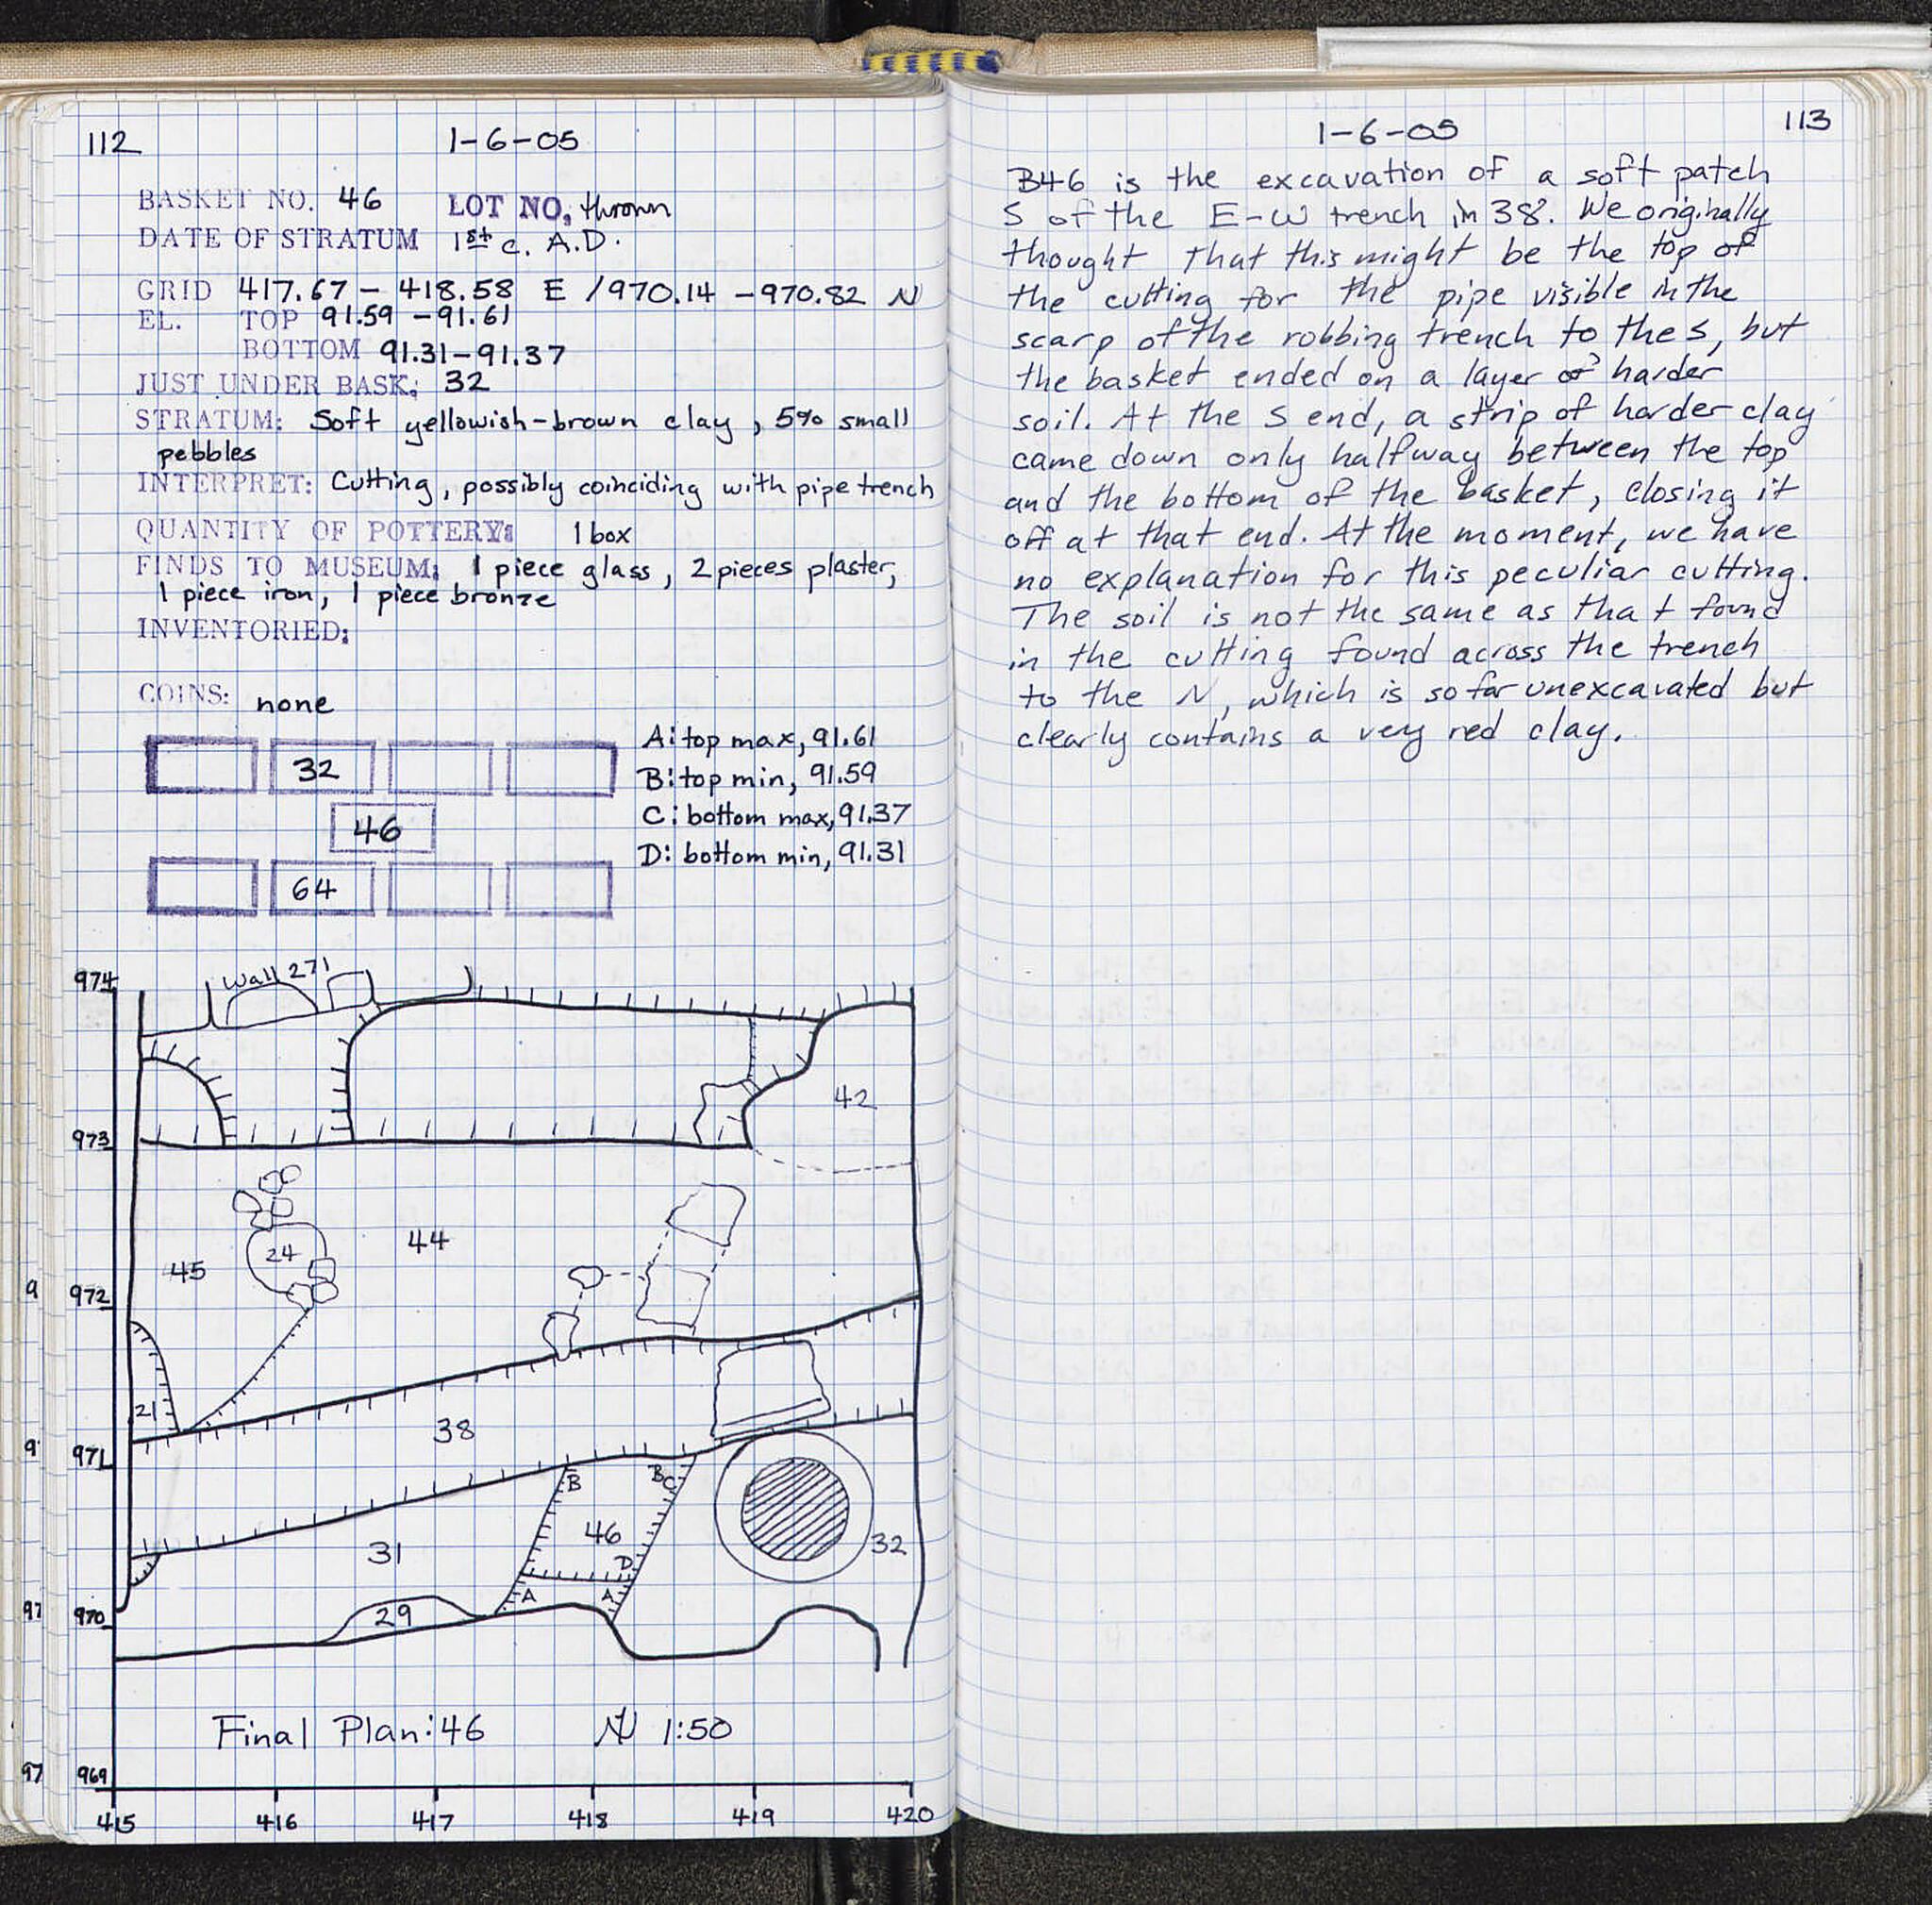 112
1-6-05
BASKET NO. 46 LOT NO. thrown
DATE OF STRATUM 1st c. A.D.
GRID 417.67 - 418.58 E / 970.14 - 970.82 N
EL. TOP 91.59 - 91.61
BOTTOM 91.31-91.37
JUST UNDER BASK: 32
STRATUM: Soft yellowish-brown clay, 5% small
pebbles
INTERPRET: Cutting, possibly coinciding with pipe trench
QUANTITY OF POTTERY: 1 box
FINDS TO MUSEUM: 1 piece glass, 2 pieces plaster,
1 piece iron, 1 piece bronze
INVENTORIED:
COINS: none
32
46
64
A: top max, 91.61
B: top min, 91.59
C: bottom max, 91.37
D: bottom min, 91.31
974
Wall 271
42
973
44
24
45
972
21
38
971
B
B
C
46
31
D
32
A
A
29
970
Final Plan: 46 N 1:50
969
415 416 417 418 419 420
9
9
97
97
1-6-05
113
B46 is the excavation of a soft patch
S of the E-W trench in 38. We originally
thought that this might be the top of
the cutting for the pipe visible in the
scarp of the robbing trench to the S, but
the basket ended on a layer of harder
soil. At the S end, a strip of harder clay
came down only halfway between the top
and the bottom of the basket, closing it
off at that end. At the moment, we have
no explanation for this peculiar cutting.
The soil is not the same as that found
in the cutting found across the trench
to the N, which is so far unexcavated but
clearly contains a very red clay.